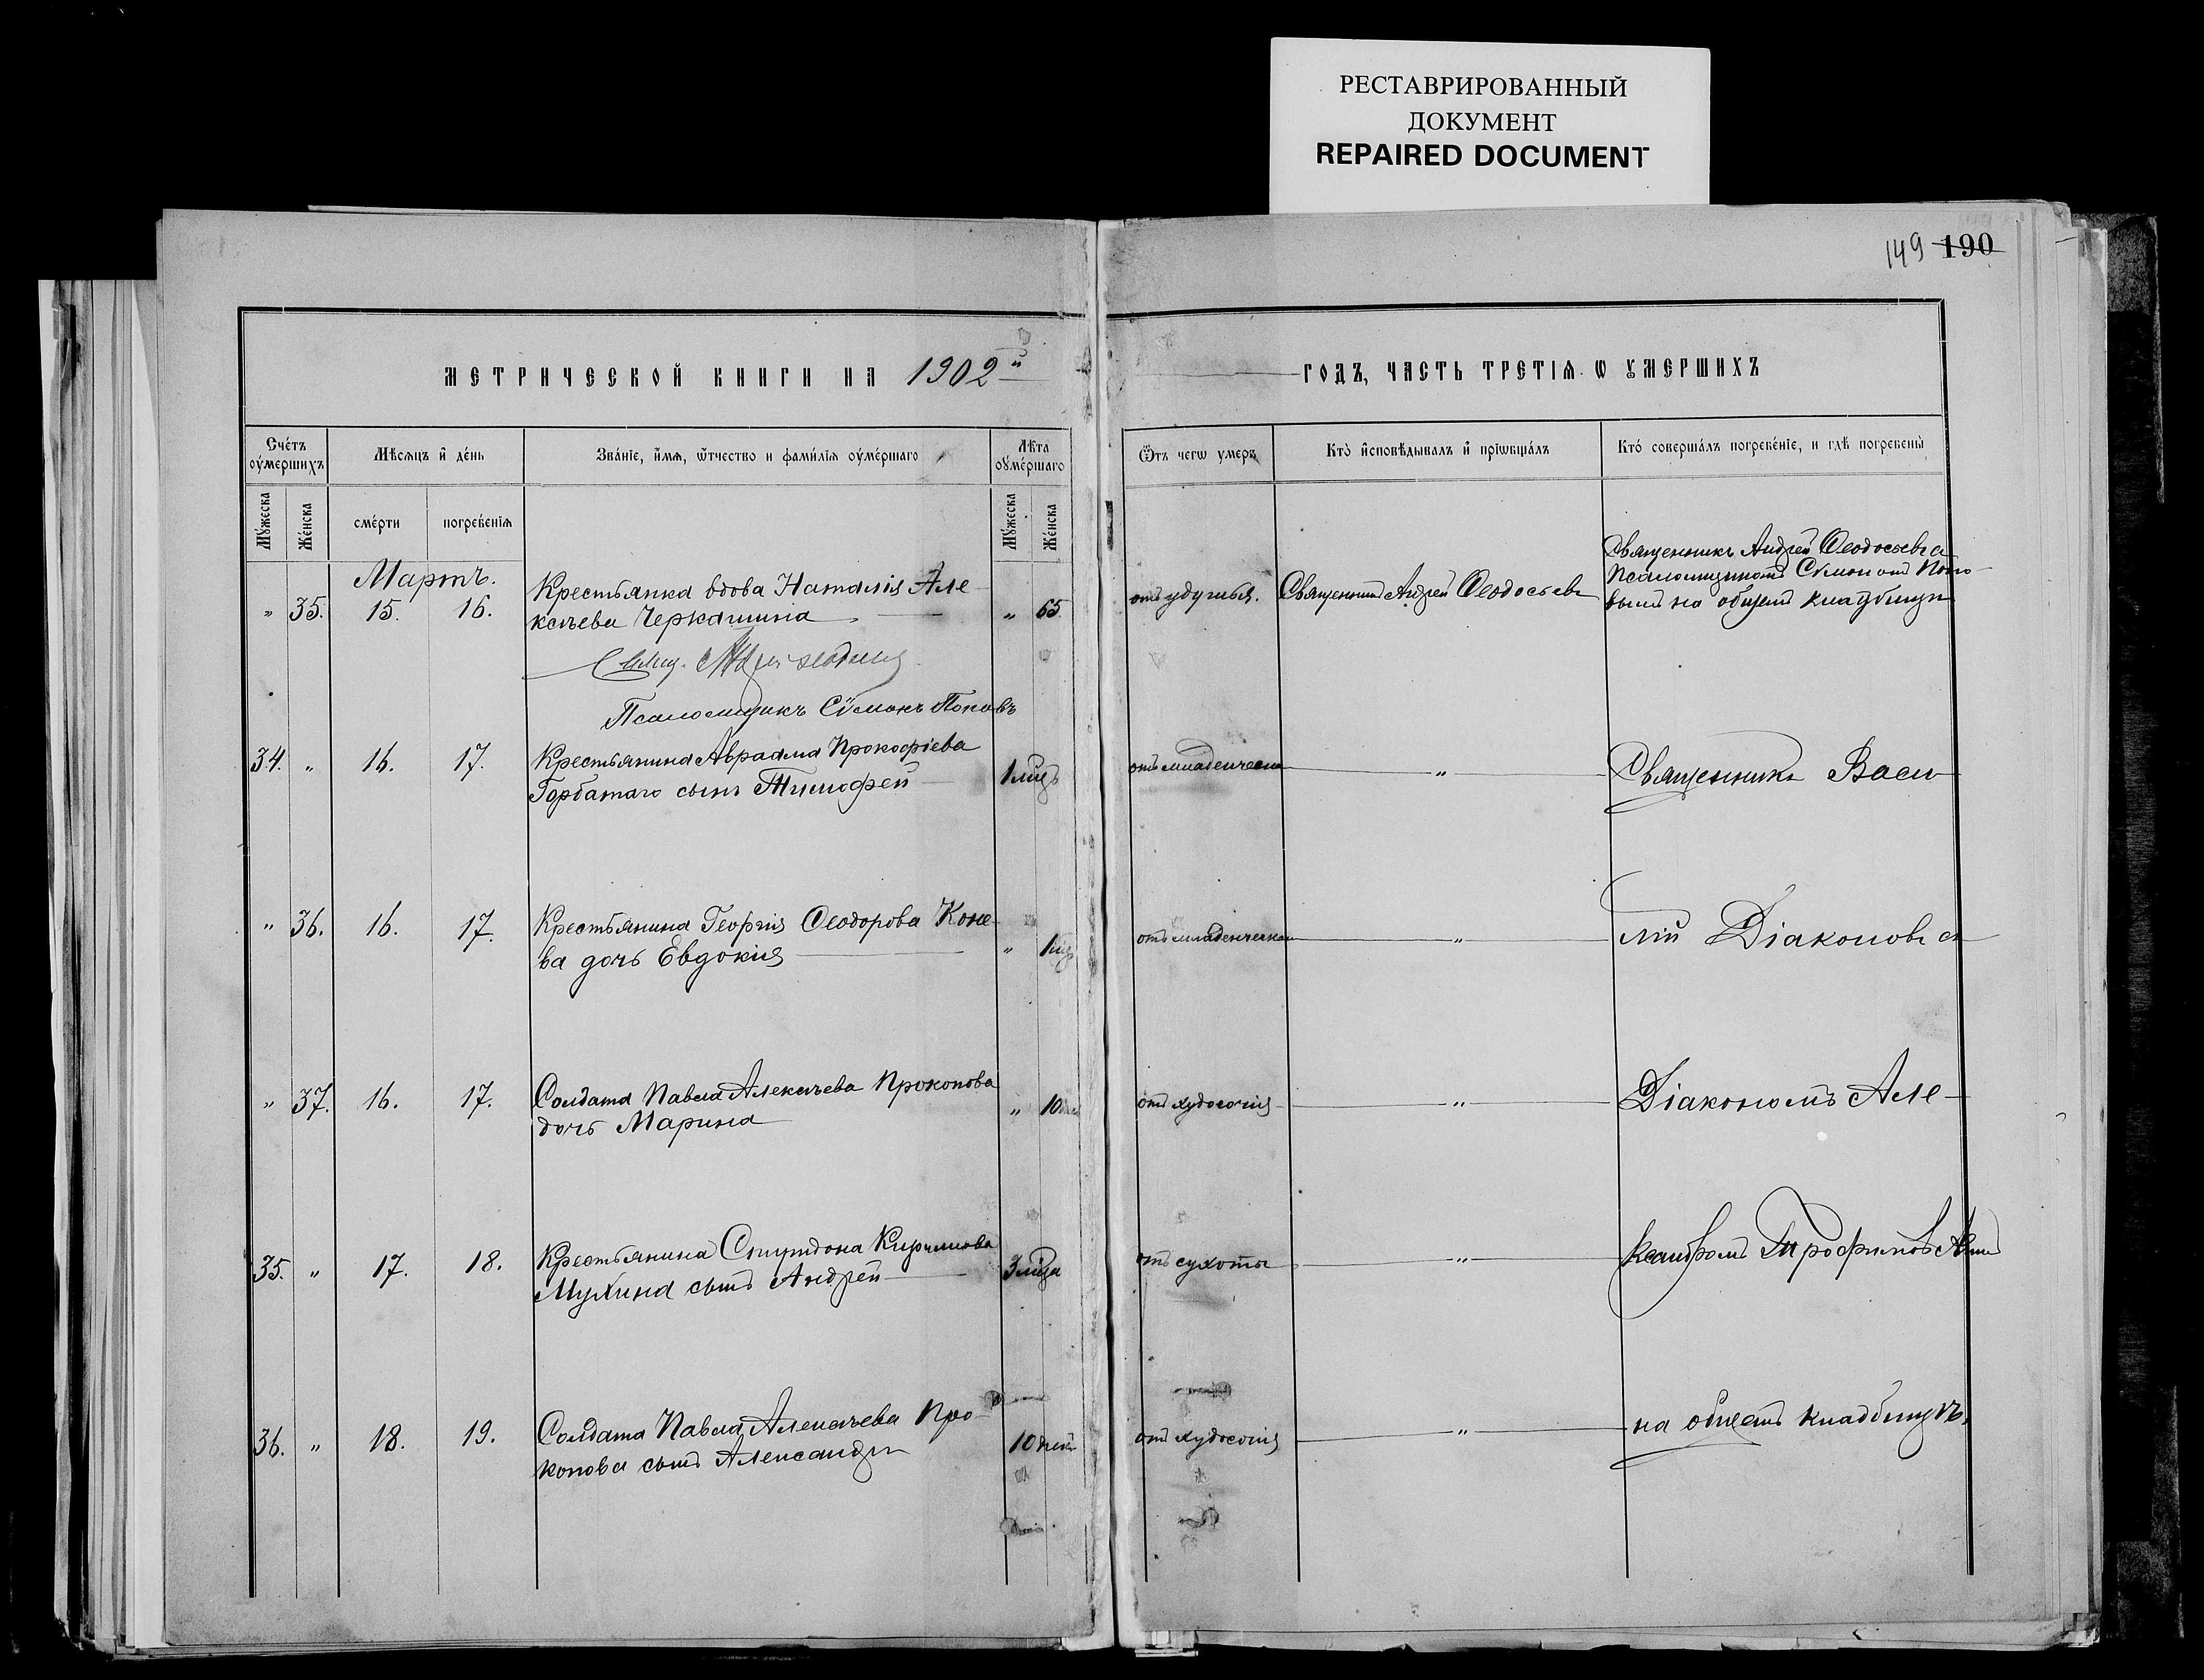 РЕСТАВРИРОВАННЫЙ
ДОКУМЕНТ
REPAIRED DOCUMENT
149 190
МЕТРИЧЕСКОЙ КНИГИ НА 1902 й
ГОДЪ, ЧАСТЬ ТРЕТІѦ Ѡ ᲂУМЕРШИХЪ
Сче́тъ ᲂуме́ршихъ
Мѣсяцъ и де́нь
Зва́нїе, и́мѧ, ѻ́тчество и фами́лїѧ ᲂуме́ршаго
Лѣта ᲂуме́ршаго
Ѿъ чегѡ умеръ
Кто̀ и҆сповѣдывалъ и҆ прїѡбща́лъ
Кто́ соверша́лъ погребе́нїе, и гдѣ погребены̀
Мꙋ́жеска
Же́нска
сме́рти
погребе́нїѧ
Мꙋ́жеска
Же́нска
Мартъ.
" 35. 15. 16.
Крестьянка вдова Наталія Але-
ксѣева Черкашина
" 65
отъ удушья.
Священникъ Андрей Ѳеодосьевъ
Священникъ Андрей Ѳеодосьевъ съ
псаломщикомъ Сѵмономъ Попо-
вымъ на общемъ кладбищѣ
Свящ.
Псаломщикъ Сѵмонъ Поповъ
34. " 16. 17.
Крестьянина Авраама Прокофіева
Горбатаго сынъ Тимофей
1 мѣц.
отъ младенческой
"
Священникъ Васи-
" 36. 16. 17.
Крестьянина Георгія Ѳеодорова Коне-
ва дочь Евдокія
" 1 мѣц.
отъ младенческой
"
лій Діаконовъ съ
" 37. 16. 17.
Солдата Павла Алексѣева Прокопова
дочь Марина
" 10 дней
отъ худосочія
"
Діакономъ Але-
35. " 17. 18.
Крестьянина Спиридона Кириллова
Мухина сынъ Андрей
3 мѣца
отъ сухоты
"
ксандромъ Трофимовымъ
36. " 18. 19.
Солдата Павла Алексѣева Про-
копова сынъ Александръ
10 дней
отъ худосочія
"
на общемъ кладбищѣ.